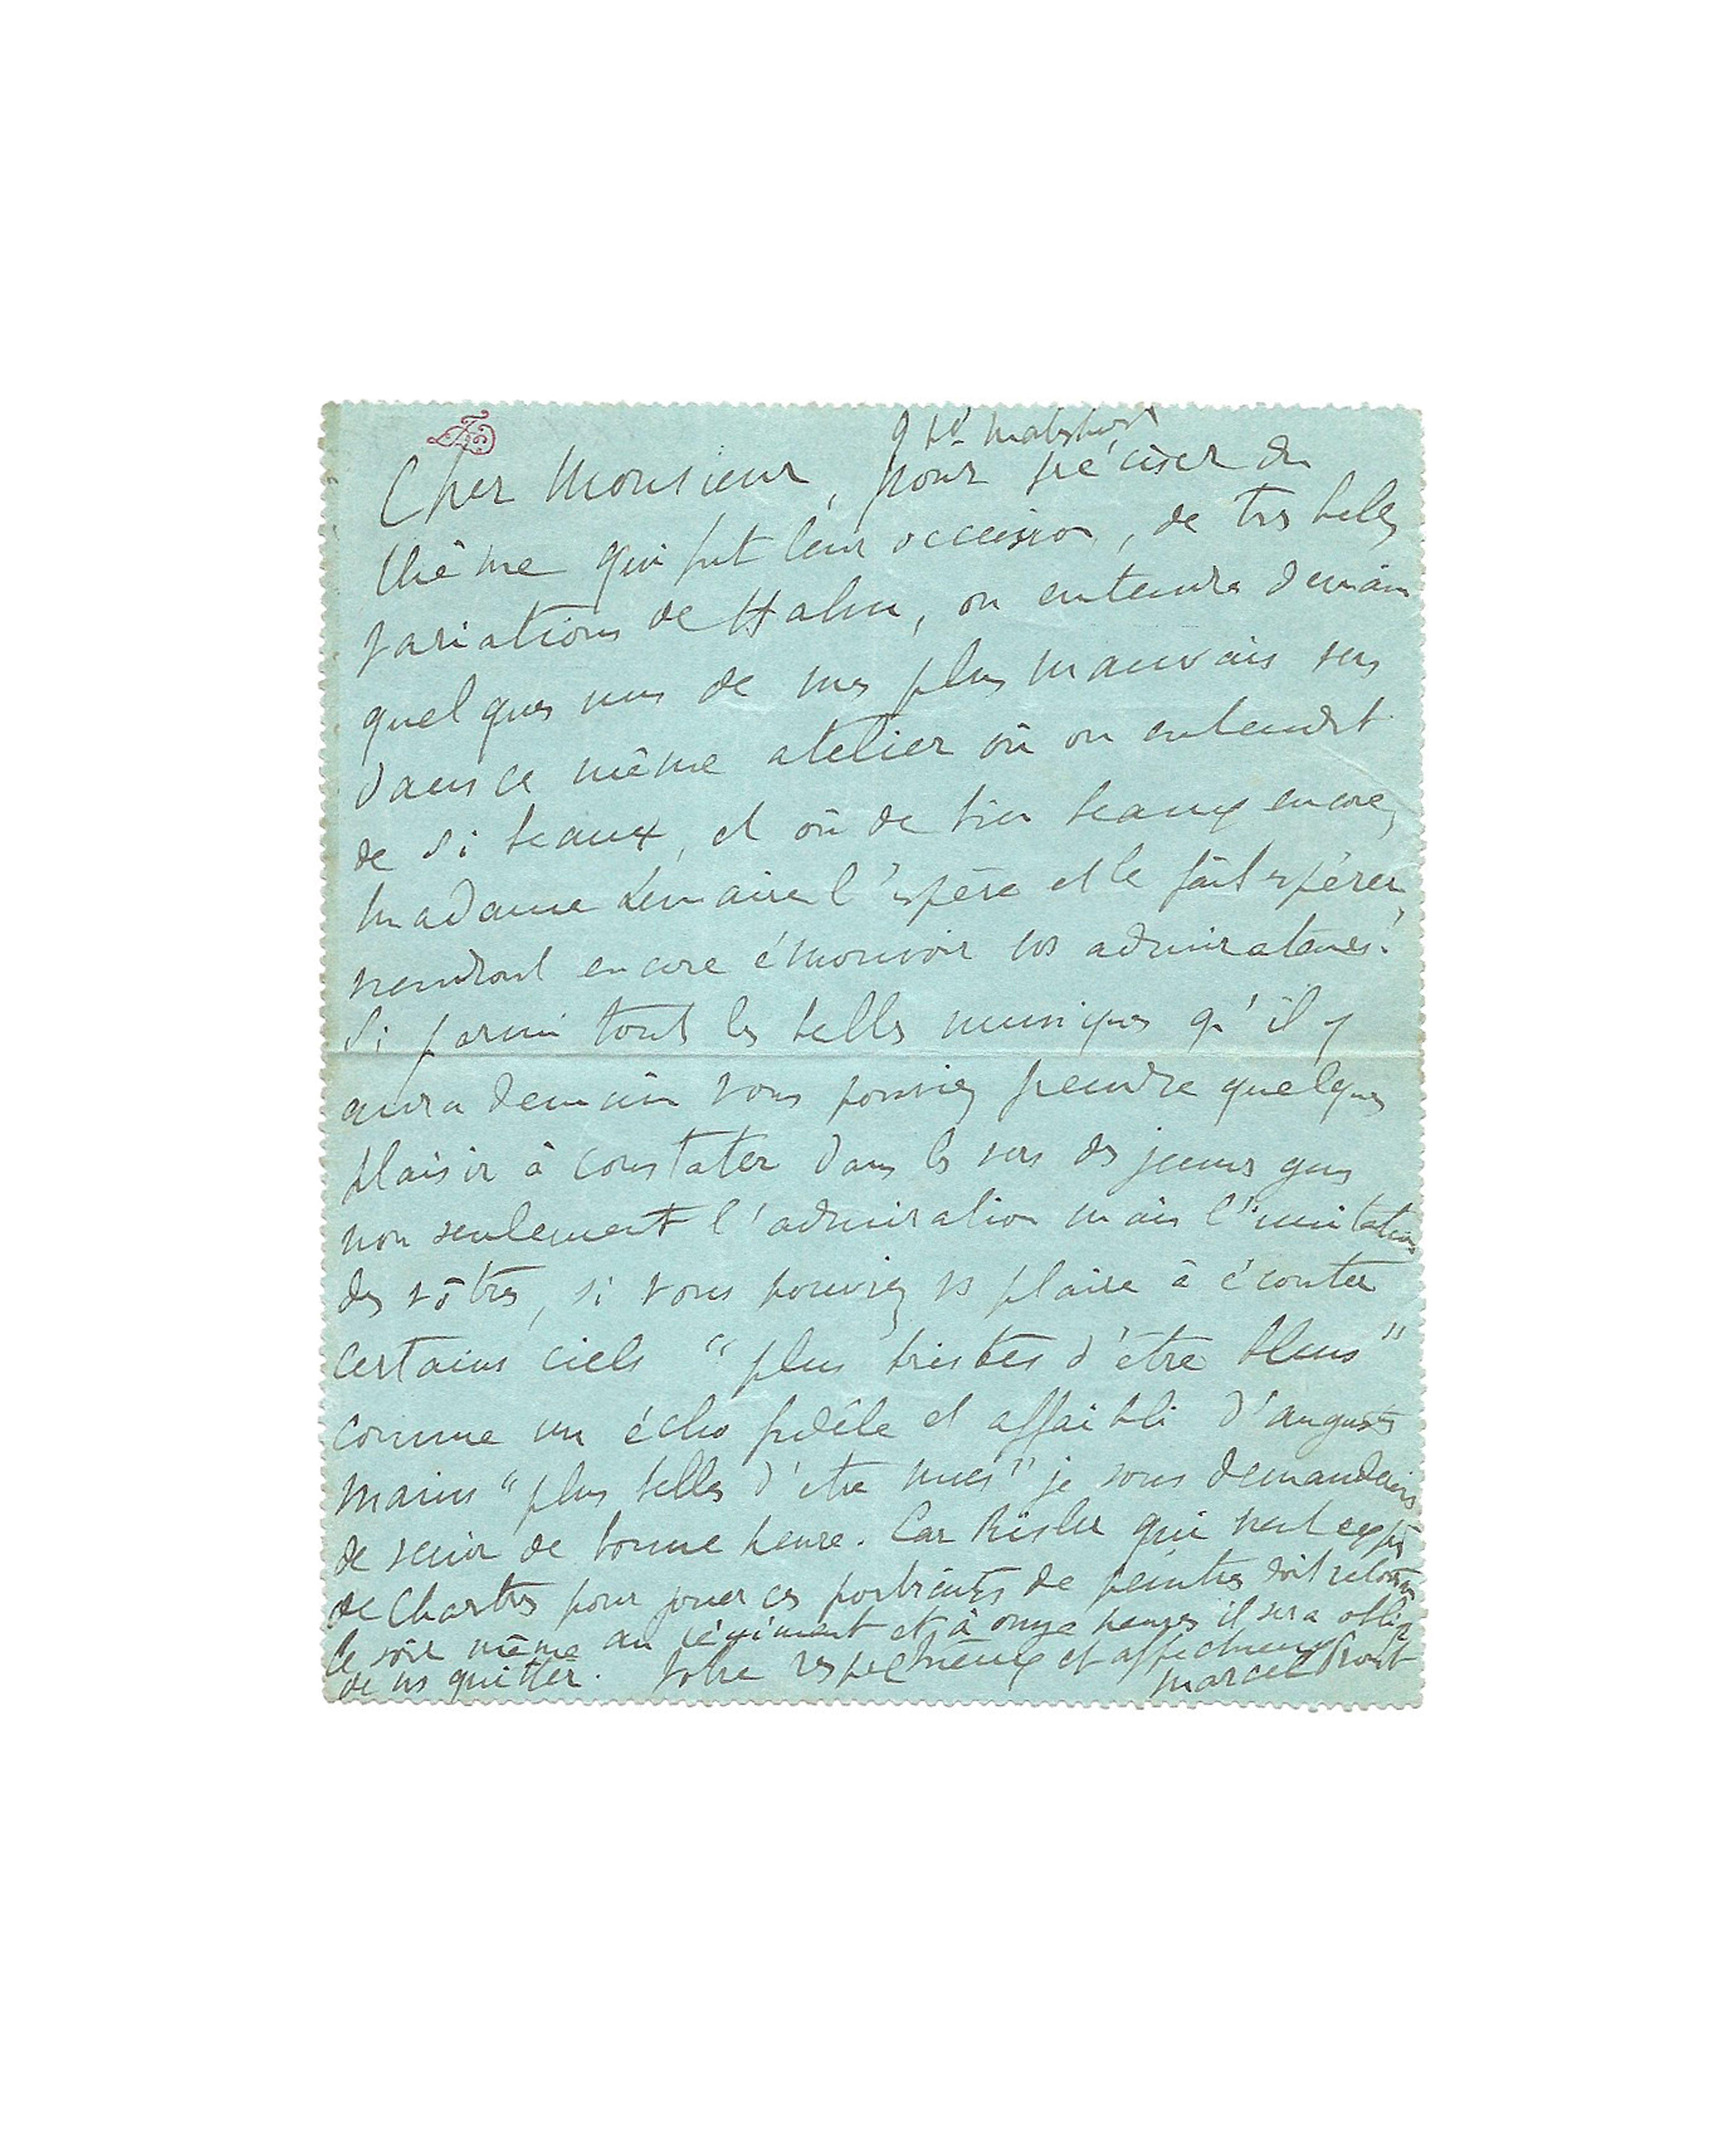 9 bd Malesherbes
Cher Monsieur, pour préciser du
thème qui fut leur occasion, de très belles
variations de Hahn, on entendra demain
quelques uns de mes plus mauvais vers
dans ce même atelier où on entendit
de si beaux, et où de bien beaux encore,
Madame Lemaire l'espère et le fait espérer,
viendront encore émouvoir vos admirateurs.
Si parmi tout les belles musiques qu'il y
aura demain vous pouviez prendre quelques
plaisir à constater dans les vers des jeunes gens
non seulement l'admiration mais l'imitation
des vôtres, si vous pouviez vs plaire à écouter
certains ciels "plus tristes d'être bleus"
comme un écho fidèle et affaibli d'augustes
mains "plus belles d'être nues" je vous demanderais
de venir de bonne heure. Car Risler qui vient exprès
de Chartres pour jouer ces portraits de peintres doit retourner
le soir même au régiment et à onze heures il sera obligé
de ns quitter. Votre respectueux et affectueux
Marcel Proust